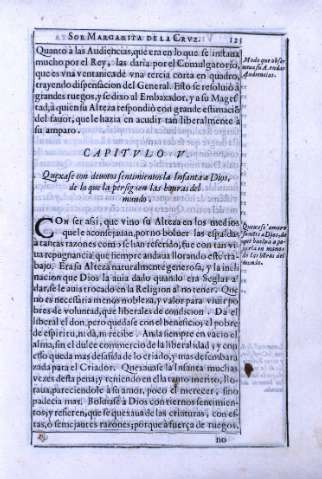 SOR MARGARITA DE LA CRVZ. 123
Quanto a las Audiencias, que era en lo que se instaua
mucho por el Rey, las daria por el Comulgatorio,
que es vna ventanica de vna tercia corta en quadro,
trayendo dispensacion del General. Esto se resoluió à
grandes ruegos, y se dixo al Embaxador, y a su Mages-
tad, à quien su Alteza respondió con grande estimaciõ
del fauor, que le hazia en acudir tan liberalmente à
su amparo.
Modo que obser
uaua su A. en dar
Audiencias.
CAPITVLO V.
Quexase con deuotos sentimientos la Infanta a Dios,
de lo que la persiguen las honras del
mundo.
CON ser assi, que vino su Alteza en los medios
que le aconsejauan, por no boluer las espaldas
a tantas razones como se han referido, fue con tan vi
ua repugnancia que siempre andaua llorando este tra-
bajo. Era su Alteza naturalmente generosa, y la incli-
nacion que Dios la auia dado quando era Seglar a
dar, se le auia trocado en la Religion al no tener. Que
no es necessaria menos nobleza, y valor para viuir po
bres de voluntad, que liberales de condicion. Da el
liberal el don, pero quedase con el beneficio; el pobre
de espiritu, ni dà, ni recibe. Anda siempre en vacio el
alma, sin el dulce comercio de la liberalidad, y con
esso queda mas desasida de lo criado, y mas desembara
zada para el Criador. Quexauase la Infanta muchas
vezes desta pena; y teniendo en ella tanto merito, llo-
raua, pareciendole à su amor, poco el merecer, sino
padecia mas. Boluiase à Dios con tiernos sentimien-
tos, y refieren, que se quexaua de las criaturas, con es-
tas, ò semejantes razones; porque à fuerça de ruegos,
no